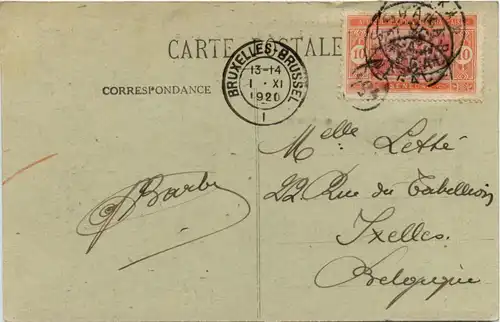 CARTE POSTALE
CORRESPONDANCE
BRUXELLES-BRUSSEL
13-14
1 · XI
1920
1
10 10
DAKAR
Melle Letté
22 Rue du Tabellion
Ixelles.
Belgique
Barbe